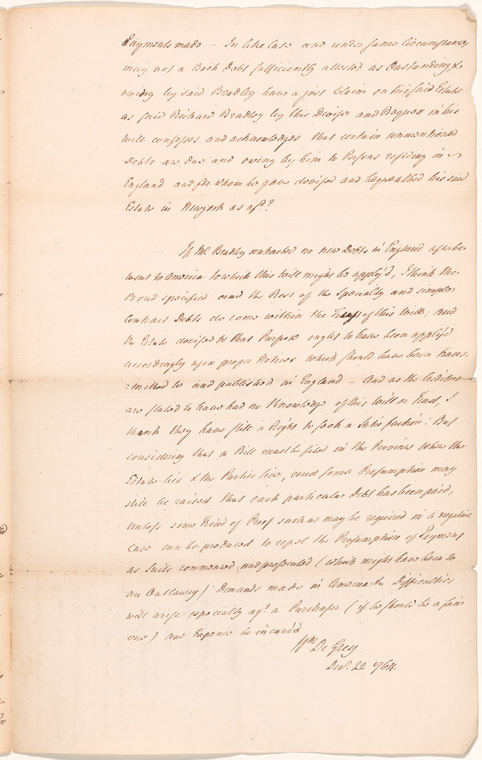 Payments made – In like Case and under same Circumstances
may not a Book Debt sufficiently attested as Outstanding &
owing by said Bradley have a just Claim on his said Estate
as said Richard Bradley by this Devise and Bequest in his
Will confesses and acknowledges that certain unmentioned
Debts are due and owing by him to Persons residing in
England and for whom he gave devised and bequeathed his said
Estate in New york as afsd?
If Mr Bradley contracted no new Debts in England after he
went to America to which this Will might be apply'd, I think the
Bond specified and the Rest of the Specialty and simple
Contract Debts do come within the of this Will; and
the Estate devised to that Purpose ought to have been apply'd
accordingly upon proper Notices which should have been trans
=mitted to and published in England – And as the Creditors
are stated to have had no Knowledge of this Will or Trust, I
think they have still a Right to seek a Satisfaction: But
considering that a Bill must be filed in the Province where the
Estate lies & the Parties live, and some Presumption may
still be raised that each particular Debt has been paid,
unless some kind of Proof such as may be required in a negative
Case can be produced to repel the Presumption of Payment
as Suits commenced and prosecuted (which might have been to
an Outlawry) Demands made in America &c Difficulties
will arise especially agt a Purchaser (if he should be a fair
one) and Expence be incurr'd
Wm De Grey
Decr. 22 1764.